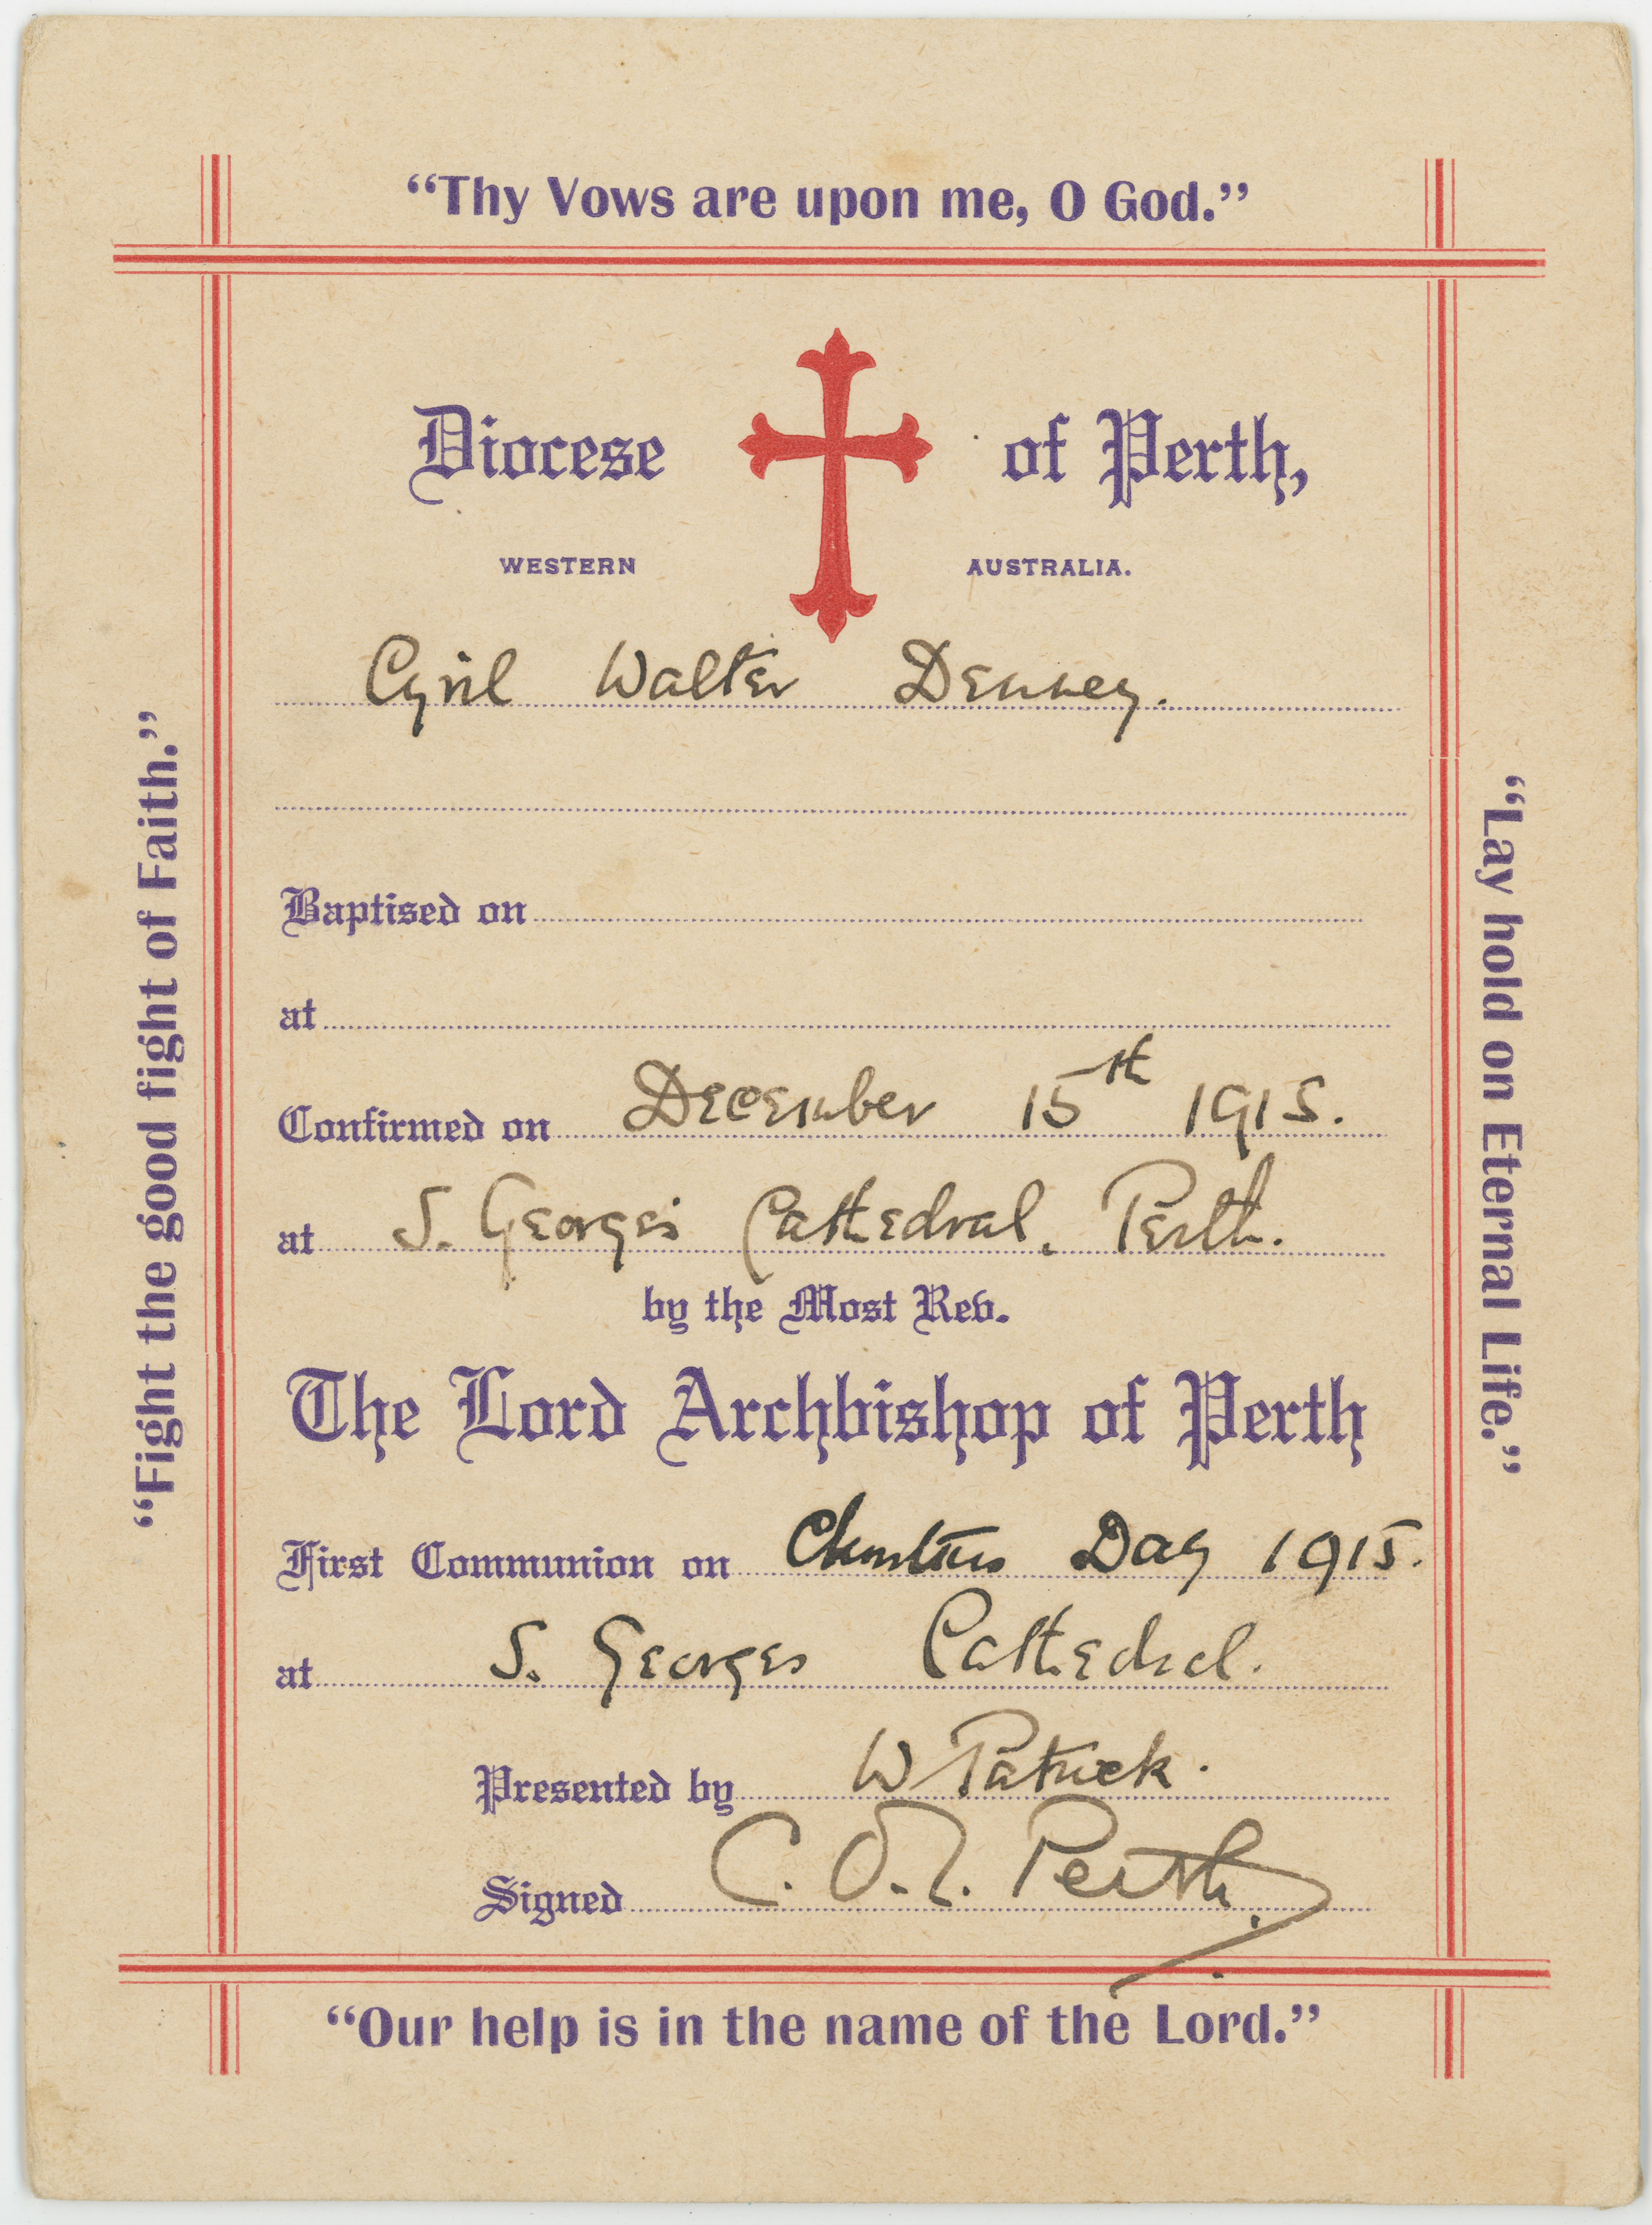 “Thy Vows are upon me, O God.”
Diocese of Perth,
WESTERN AUSTRALIA.
Cyril Walter Denney.
Baptised on
at
Confirmed on December 15th 1915.
at S. Georges Cathedral. Perth.
by the Most Rev.
The Lord Archbishop of Perth
First Communion on Christmas Day 1915.
at S. Georges Cathedral.
Presented by W Patrick.
Signed C. O. L. Perth.
“Our help is in the name of the Lord.”
“Fight the good fight of Faith.”
“Lay hold on Eternal Life.”